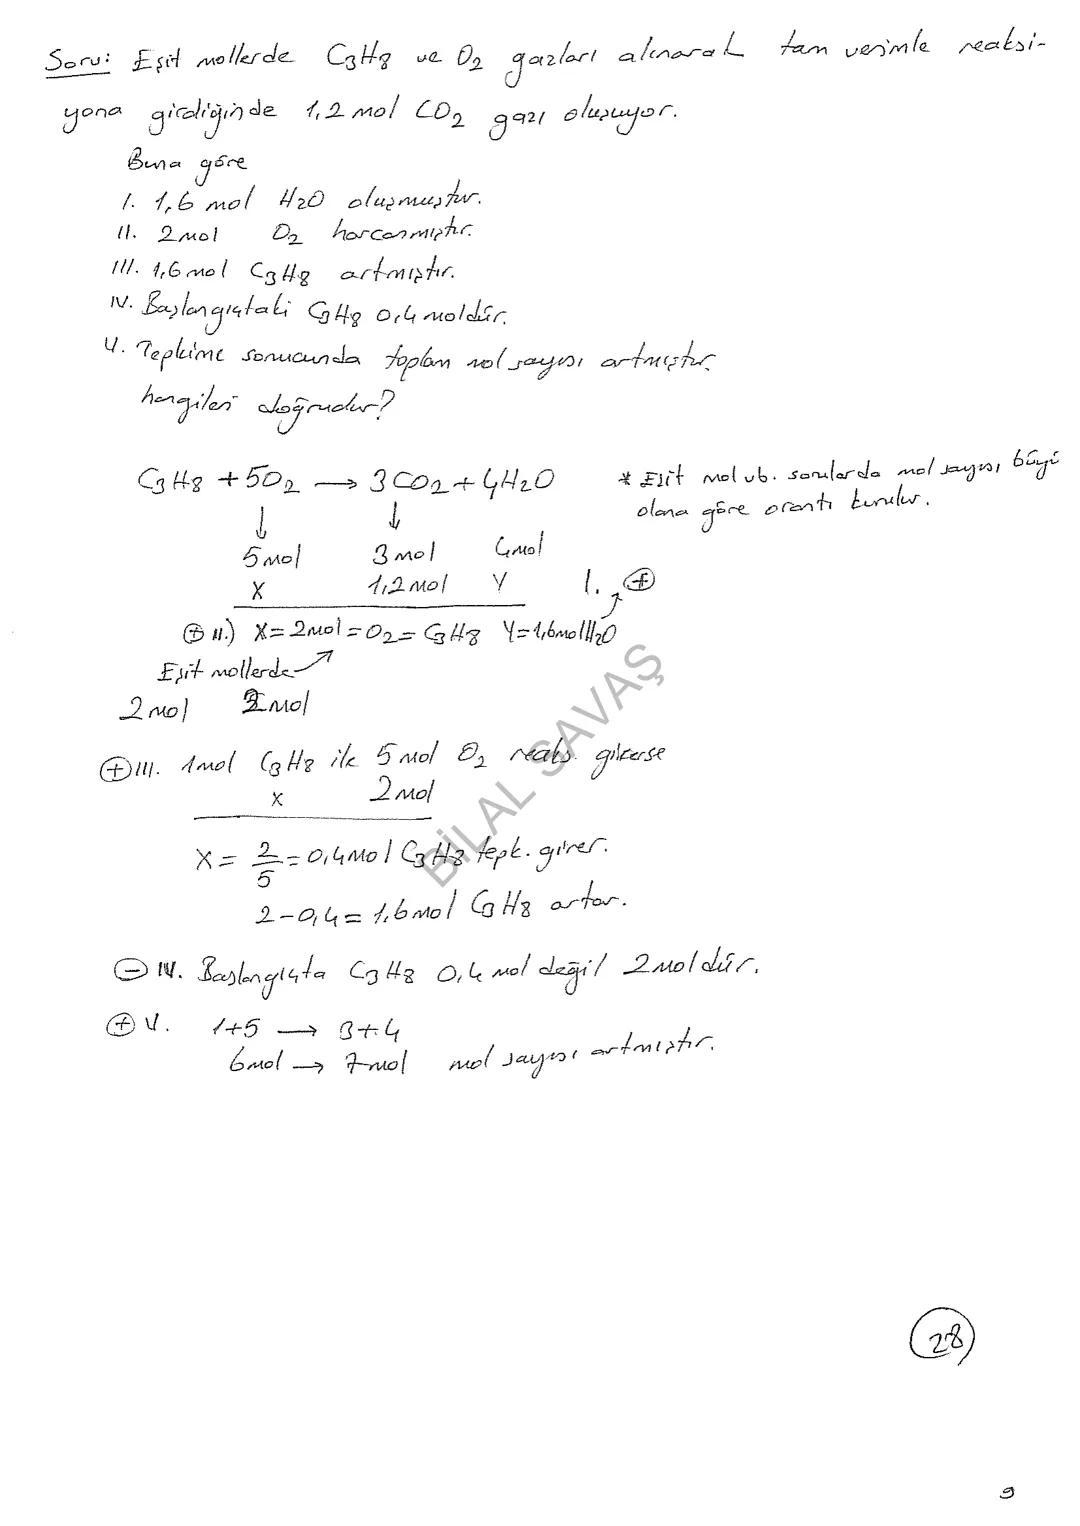 Soru: Eşit mollerde C3H8 ve O2 gazları alınarak tam verimle reaksi-
yona girdiğinde 1,2 mol CO2 gazı oluşuyor.
Buna göre
I. 1,6 mol H2O oluşmuştur.
II. 2mol O2 harcanmıştır.
III. 1,6 mol C3H8 artmıştır.
IV. Başlangıçtaki C3H8 0,4 moldür.
V. Tepkime sonucunda toplam mol sayısı artmıştır.
hangileri doğrudur?
C3H8 + 5O2 → 3CO2 + 4H2O
* Eşit mol vb. sorularda mol sayısı büyü
olana göre orantı kurulur.
↓ ↓
5mol 3mol 4mol
X 1,2mol Y I. (+)
(+) II.) X=2mol=O2=C3H8 Y=1,6molH2O
Eşit mollerde
2mol 2mol
(+) III. 1mol C3H8 ile 5 mol O2 reaks. girerse
X 2mol
X = 2/5 = 0,4mol C3H8 tepk. girer.
2-0,4=1,6mol C3H8 artar.
(-) IV. Başlangıçta C3H8 0,4 mol değil 2moldür.
(+) V. 1+5 → 3+4
6mol → 7mol mol sayısı artmıştır.
BİLAL SAVAŞ
28
9